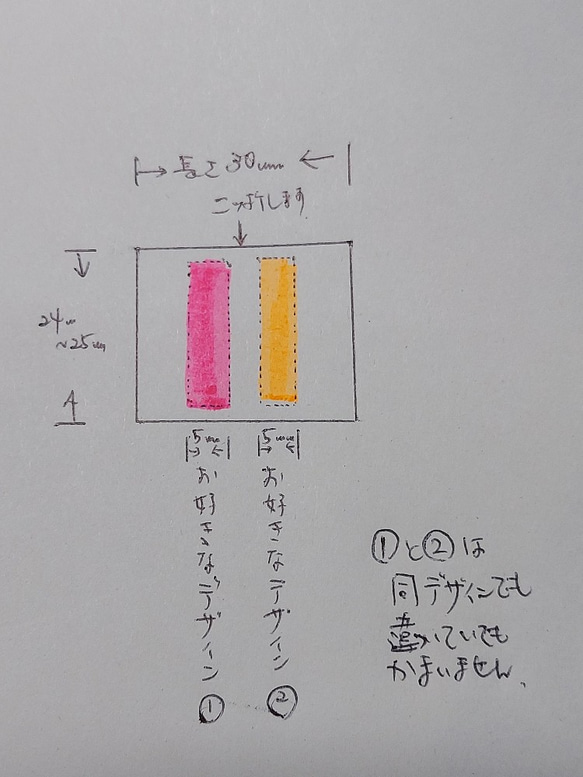 長さ30mm
二つ折りします
24mm
~25mm
5mm
5mm
お好きなデザイン
①
お好きなデザイン
②
①と②は
同デザインでも
違っていても
かまいません。